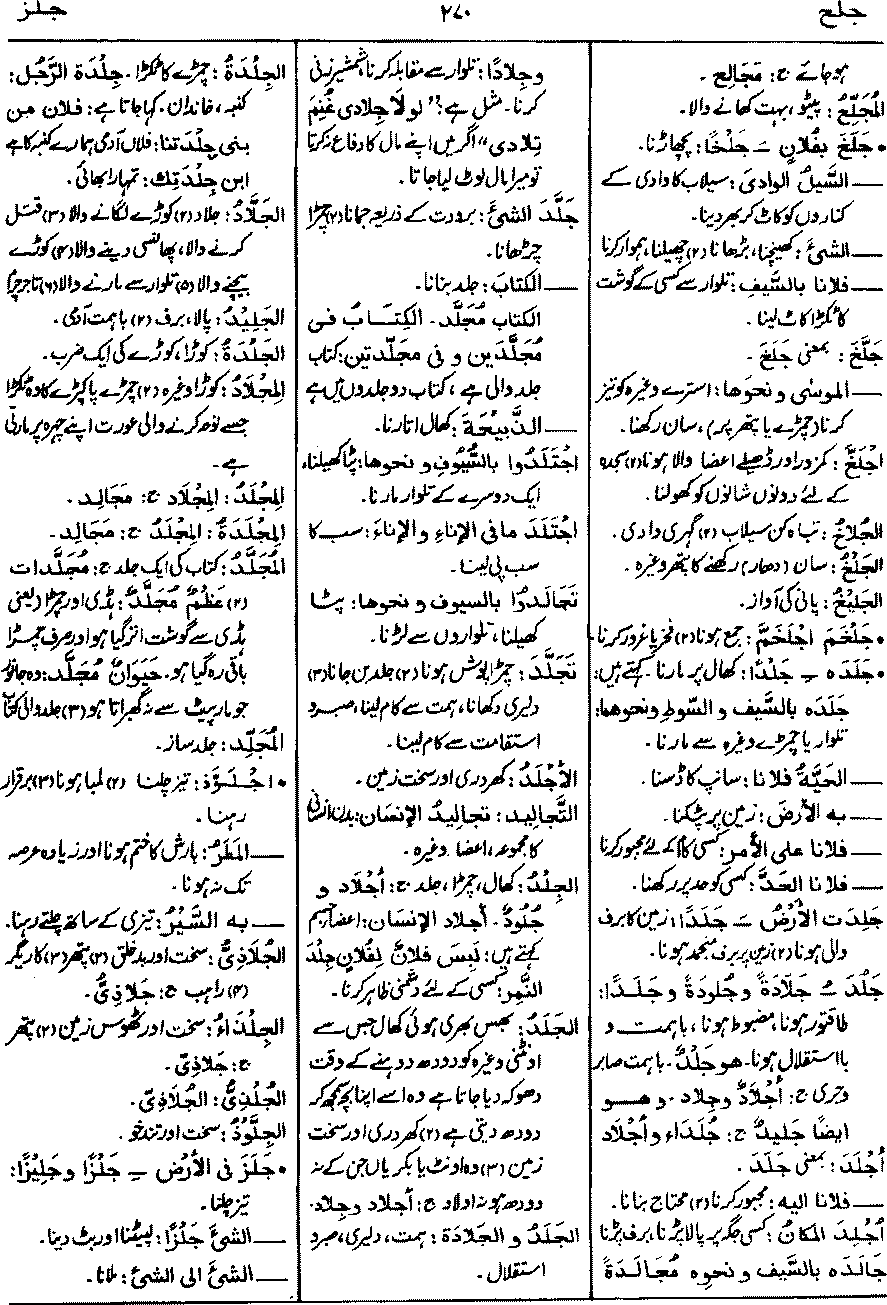 جلح ۲۷۰ جلز
ہوجائے ج: مَجَالِح ۔
المُجَلِّحُ: پیٹو، بہت کھانے والا۔
• جَلَخَ بفُلانٍ ــَ جَلْخًا: پچھاڑنا۔
ــــ السَّيلُ الوادِیَ: سیلاب کا وادی کے
کناروں کو کاٹ کر بھر دینا۔
ــــ الشئَ: کھینچنا، بڑھانا (۲) چھیلنا، ہموار کرنا
ــــ فلانا بالسَّيفِ: تلوار سے کسی کے گوشت
کا ٹکڑا کاٹ لینا۔
جَلَّخَ: بمعنی جَلَخَ ۔
ــــ الموسٰی و نحوَها: استرے وغیرہ کو تیز
کرنا (چمڑے یا پتھر پر)، سان رکھنا۔
اجْلَخَّ: کمزور اور ڈھیلے اعضا والا ہونا (۲) سجدہ
کے لئے دونوں شانوں کو کھولنا۔
الجُلاخُ: تباہ کن سیلاب (۲) گہری وادی۔
الجَلْخُ: سان (دھار) رکھنے کا پتھر وغیرہ ۔
الجَلِيْخُ: پانی کی آواز۔
• جَلْخَمَ اجْلَخَمَّ: جمع ہونا (۲) فخر یا غرور کرنا
• جَلَدَه ــِ جَلْدًا: کھال پر مارنا۔ کہتے ہیں:
جَلَدَه بالسَّيف و السَّوطِ ونحوهما:
تلوار یا چمڑے وغیرہ سے مارنا۔
ــــ الحَيَّةُ فلانا: سانپ کا ڈسنا۔
ــــ به الأرضَ: زمین پر پٹکنا۔
ــــ فلانا علی الأمر: کسی کام کے لئے مجبور کرنا
ــــ فلانا الحَدَّ: کسی کو حد پر رکھنا۔
جَلِدَت الأرْضُ ــَ جَلَدًا: زمین کا برف
والی ہونا (۲) زمین پر برف منجمد ہونا۔
جَلُدَ ــُ جَلَادَةً وجُلودَةً وجَلَدًا:
طاقتور ہونا، مضبوط ہونا، باہمت و
بااستقلال ہونا۔ هو جَلْدٌ۔ باہمت صابر
وجری ج: أجْلادٌ وجِلاد ۔ و هــو
ايضًا جَليدٌ ج: جُلَدَاء و أجْلاد
أجْلَدَ: بمعنی جَلَدَ ۔
ــــ فلانا اليه: مجبور کرنا (۲) محتاج بنانا۔
أُجْلِدَ المَكانُ: کسی جگہ پر پالا پڑنا، برف پڑنا
جَالَدَه بالسَّيف و نحوِه مُجَالَدَةً
وجِلادًا: تلوار سے مقابلہ کرنا، شمشیر زنی
کرنا۔ مثل ہے: "لولَا جِلادی غُنِمَ
تِلادی" اگر میں اپنے مال کا دفاع نہ کرتا
تو میرا مال لوٹ لیا جاتا۔
جَلَّدَ الشئَ: برودت کے ذریعہ جمانا (۲) چمڑا
چڑھانا۔
ــــ الكتابَ: جلد بنانا۔
الكتاب مُجَلَّد۔ الكِتَابُ فی
مُجَلَّدَين و فی مجلّدتين: کتاب
جلد والی ہے، کتاب دو جلدوں میں ہے
ــــ الذَّبيحَةَ: کھال اتارنا۔
اجْتَلَدُوا بالسُّيُوفِ و نحوِها: پٹا کھیلنا،
ایک دوسرے کے تلوار مارنا۔
اجْتَلَدَ مافی الإناءِ والإناءَ: سب کا
سب پی لینا۔
تَجَالَدُوا بالسيوف و نحوها: پٹا
کھیلنا، تلواروں سے لڑنا۔
تَجَلَّدَ: چمڑا پوش ہونا (۲) جلد بن جانا (۳)
دلیری دکھانا، ہمت سے کام لینا، صبر و
استقامت سے کام لینا۔
الأجْلَدُ: کھردری اور سخت زمین۔
التَّجَاليد: تجاليدُ الإنسان: بدن انسانی
کا مجموعہ، اعضاء وغیرہ ۔
الجِلْدُ: کھال، چمڑا، جلد ج: أجْلاد و
جُلُودٌ۔ أجلاد الإنسان: اعضاء جسم
کہتے ہیں: لَبِسَ فلانٌ لِفُلانٍ جِلْدَ
النَّمِر: کسی کے لئے دشمنی ظاہر کرنا۔
الجَلَدُ: بھس بھری ہوئی کھال جس سے
اونٹنی وغیرہ کو دودھ دوہنے کے وقت
دھوکہ دیا جاتا ہے وہ اسے اپنا بچہ سمجھ کر
دودھ دیتی ہے (۲) کھردری اور سخت
زمین (۳) وہ اونٹ یا بکریاں جن کے نہ
دودھ ہو نہ اولاد ج: أجلاد وجِلاد۔
الجَلَدُ و الجَلادَة: ہمت، دلیری، صبر و
استقلال۔
الجِلْدَةُ: چمڑے کا ٹکڑا۔ جِلْدَة الرَّجُل:
کنبہ، خاندان۔ کہا جاتا ہے: فلان من
بنی جِلْدَتنا: فلاں آدمی ہمارے کنبہ کا ہے
ابن جِلْدَتِك: تمہارا بھائی۔
الجَلَّادُ: جلاد (۲) کوڑے لگانے والا (۳) قتل
کرنے والا، پھانسی دینے والا (۴) کوڑے
بیچنے والا (۵) تلوار سے مارنے والا (۶) تاجر چرم
الجَلِيْدُ: پالا، برف (۲) باہمت آدمی۔
الجَلْدَةُ: کوڑا، کوڑے کی ایک ضرب۔
المِجْلَادُ: کوڑا وغیرہ (۲) چمڑے یا کپڑے کا وہ ٹکڑا
جسے نوحہ کرنے والی عورت اپنے چہرہ پر مارتی
ہے۔
المِجْلَدُ: المِجْلاد ج: مَجَالِد۔
المِجْلَدَةُ: المِجْلَدُ ج: مَجَالِد۔
المُجَلَّدُ: کتاب کی ایک جلد ج: مُجَلَّدات
(۲) عَظْمٌ مُجَلَّدٌ: ہڈی اور چمڑا (یعنی
ہڈی سے گوشت اتر گیا ہو اور صرف چمڑا
باقی رہ گیا ہو۔ حَيَوانٌ مُجَلَّد: وہ جانور
جو مار پیٹ سے نہ گھبراتا ہو (۳) جلد والی کتاب
المُجَلِّد: جلد ساز۔
• اجْلَوَّذَ: تیز چلنا (۲) لمبا ہونا (۳) برقرار
رہنا۔
ــــ المَطَرُ: بارش کا ختم ہونا اور زیادہ عرصہ
تک نہ ہونا۔
ــــ به السَّيْرُ: تیزی کے ساتھ چلتے رہنا۔
الجُلَاذِیُّ: سخت اور بدخلق (۲) پتھر (۳) کاریگر
(۴) راہب ج: جَلاذِیُّ۔
الجِلْذَاءُ: سخت اور ٹھوس زمین (۲) پتھر
ج: جَلاذِیّ۔
الجُلْذِیُّ: الجُلَاذِیّ۔
الجِلَّوْذُ: سخت اور تندخو ۔
• جَلَزَ فی الأرْضِ ــِ جَلْزًا وجَلِيْزًا:
تیز چلنا۔
ــــ الشئَ جَلْزًا: لپیٹنا اور بٹ دینا۔
ــــ الشئَ الی الشئِ: ملانا۔